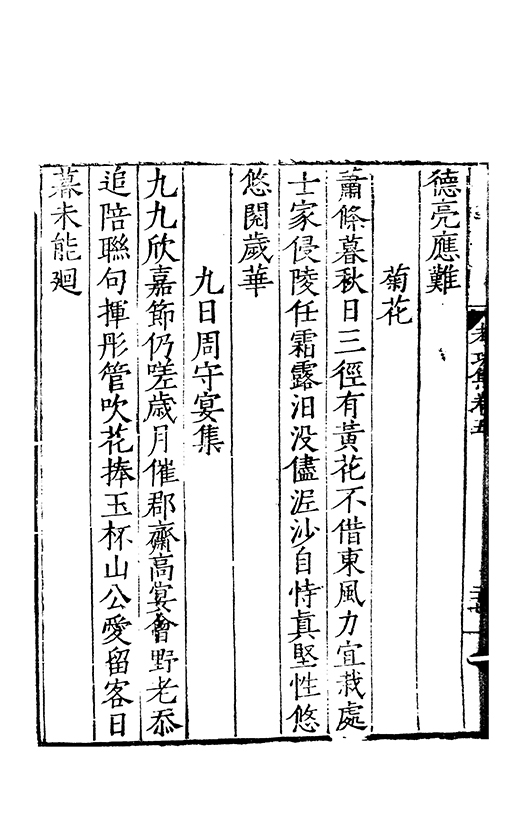 德亮應難
菊花
蕭條暮秋日三徑有黃花不借東風力宜栽處
士家侵陵任霜露汨没儘泥沙自恃眞堅性悠
悠閱歲華
九日周守宴集
九九欣嘉節仍嗟歲月催郡齋高宴會野老忝
追陪聯句揮彤管吹花捧玉杯山公愛留客日
暮未能廻
考功集卷五